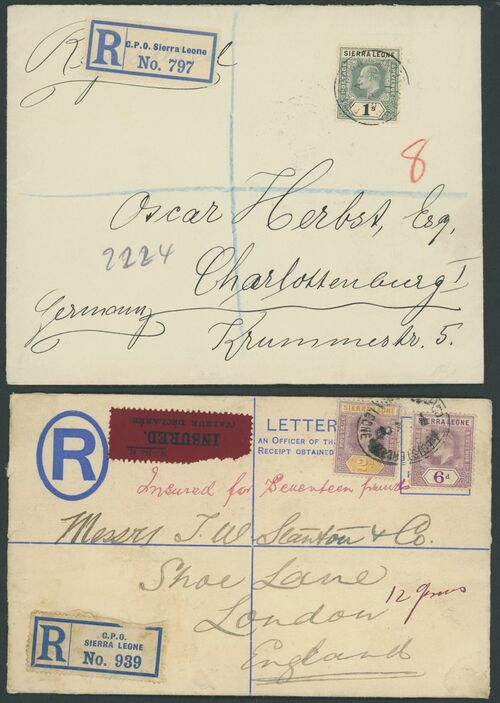 Registered
R G.P.O. Sierra Leone
No. 797
SIERRA LEONE
POSTAGE
1s
8
Oscar Herbst, Esq,
2224
Charlottenburg I
Germany
Krummestr. 5.
R
INSURED.
(VALEUR DÉCLARÉE)
LETTER
AN OFFICER OF TH
RECEIPT OBTAINED
SIERRA LEONE
2d
SIERRA LEONE
6d
Insured for Seventeen pounds
Messrs J. W. Stanton & Co.
Shoe Lane
12 gms
London
England
R G.P.O.
SIERRA LEONE
No. 939